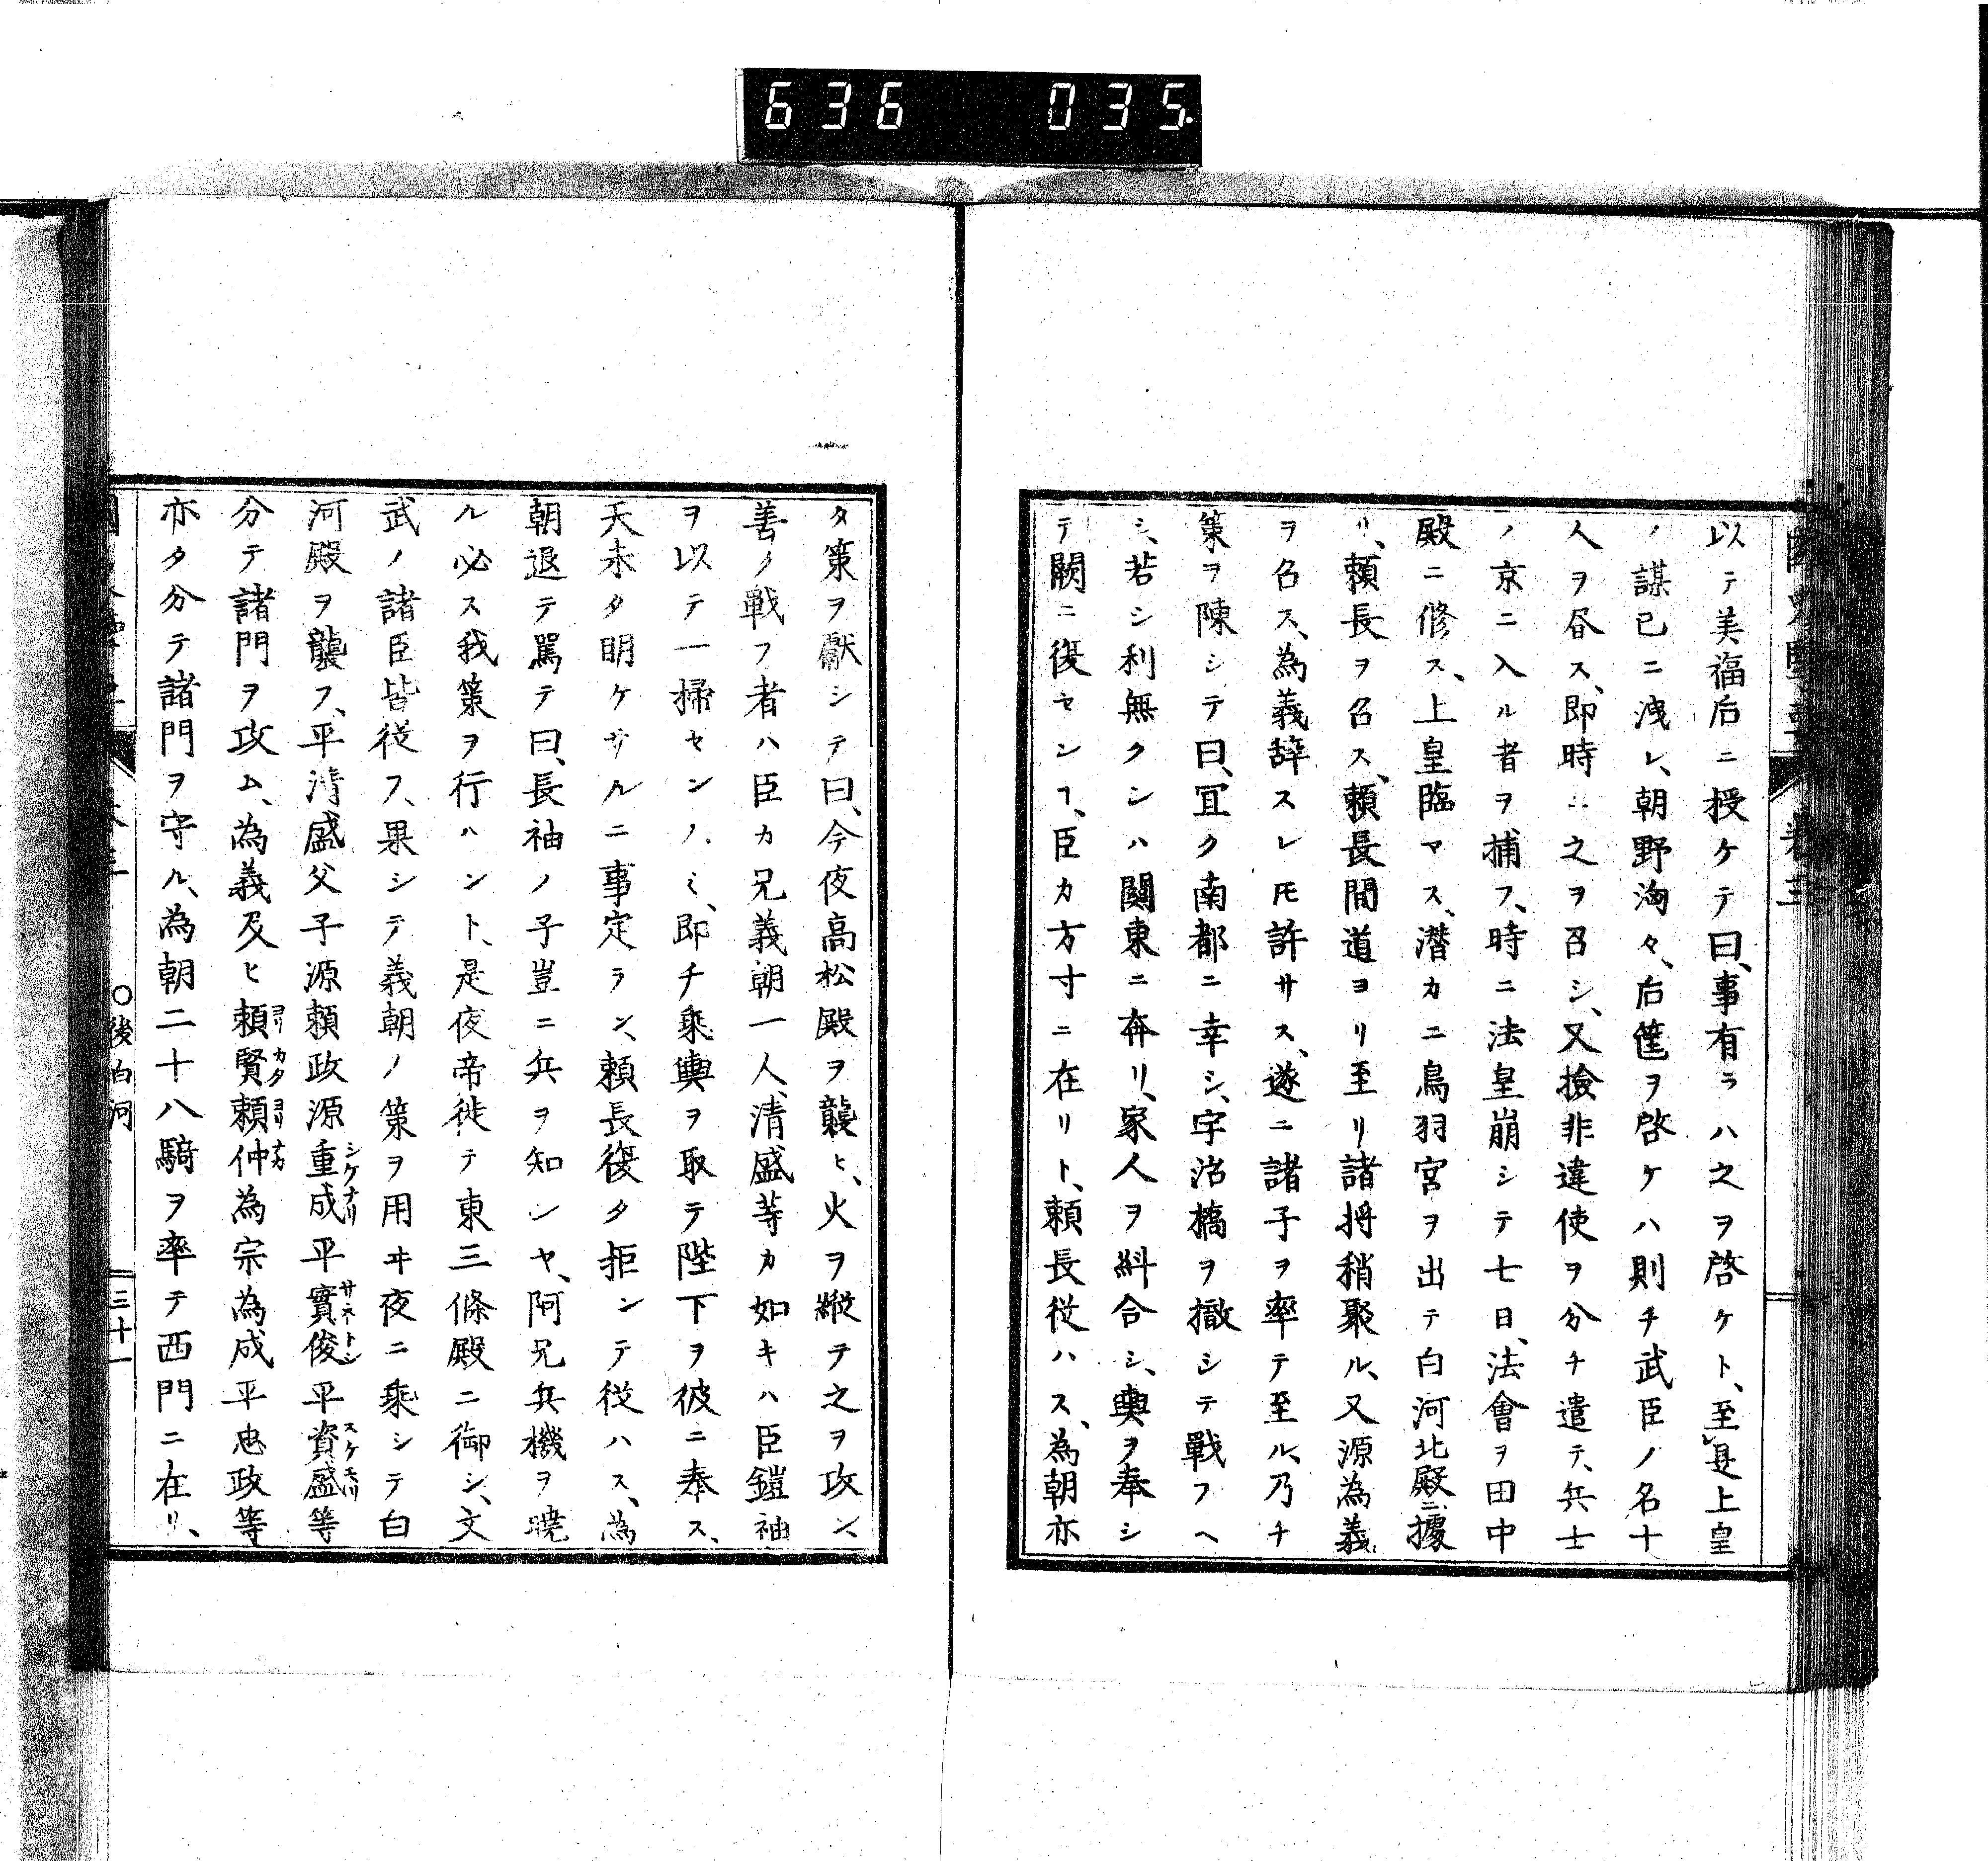 636 035
以テ美福后ニ授ケテ曰、事有ラハ之ヲ啓ケト、至是上皇
ノ謀已ニ洩レ、朝野洶々、后篋ヲ啓ケハ則チ武臣ノ名十
人ヲ昼ス、即時ニ之ヲ召シ、又撿非違使ヲ分チ遣テ、兵士
ノ京ニ入ル者ヲ捕フ、時ニ法皇崩シテ七日、法會ヲ田中
殿ニ修ス、上皇臨マス、潜カニ鳥羽宮ヲ出テ白河北殿ニ據
リ、頼長ヲ召ス、頼長間道ヨリ至リ諸将稍聚ル、又源為義
ヲ召ス、為義辞スレ𪜈許サス、遂ニ諸子ヲ率テ至ル、乃チ
策ヲ陳シテ曰、冝ク南都ニ幸シ、宇治橋ヲ撤シテ戰フヘ
シ、若シ利無クンハ關東ニ奔リ、家人ヲ糾合シ、輿ヲ奉シ
テ闕ニ復セシヿ、臣カ方寸ニ在リト、頼長従ハス、為朝亦
タ策ヲ獻シテ曰、今夜高松殿ヲ襲ヒ、火ヲ縦テ之ヲ攻ン、
善ク戰フ者ハ臣カ兄義朝一人、清盛等カ如キハ臣鎧袖
ヲ以テ一掃センノミ、即チ乘輿ヲ取テ陛下ヲ彼ニ奉ス、
天未タ明ケサルニ事定ラン、頼長復タ拒ンテ従ハス、為
朝退テ罵テ曰、長袖ノ子豈ニ兵ヲ知ンヤ、阿兄兵機ヲ曉
ル必ス我策ヲ行ハント、是夜帝徙テ東三條殿ニ御シ、文
武ノ諸臣皆従フ、果シテ義朝ノ策ヲ用ヰ夜ニ乘シテ白
河殿ヲ襲フ、平清盛父子源頼政源重成シケナリ平實俊サネトシ平資盛スケモリ等
分テ諸門ヲ攻ム、為義及ヒ頼賢ヨリカタ頼仲ヨリナカ為宗為成平忠政等
亦タ分テ諸門ヲ守ル、為朝二十八騎ヲ率テ西門ニ在リ、
○後白河 三十一